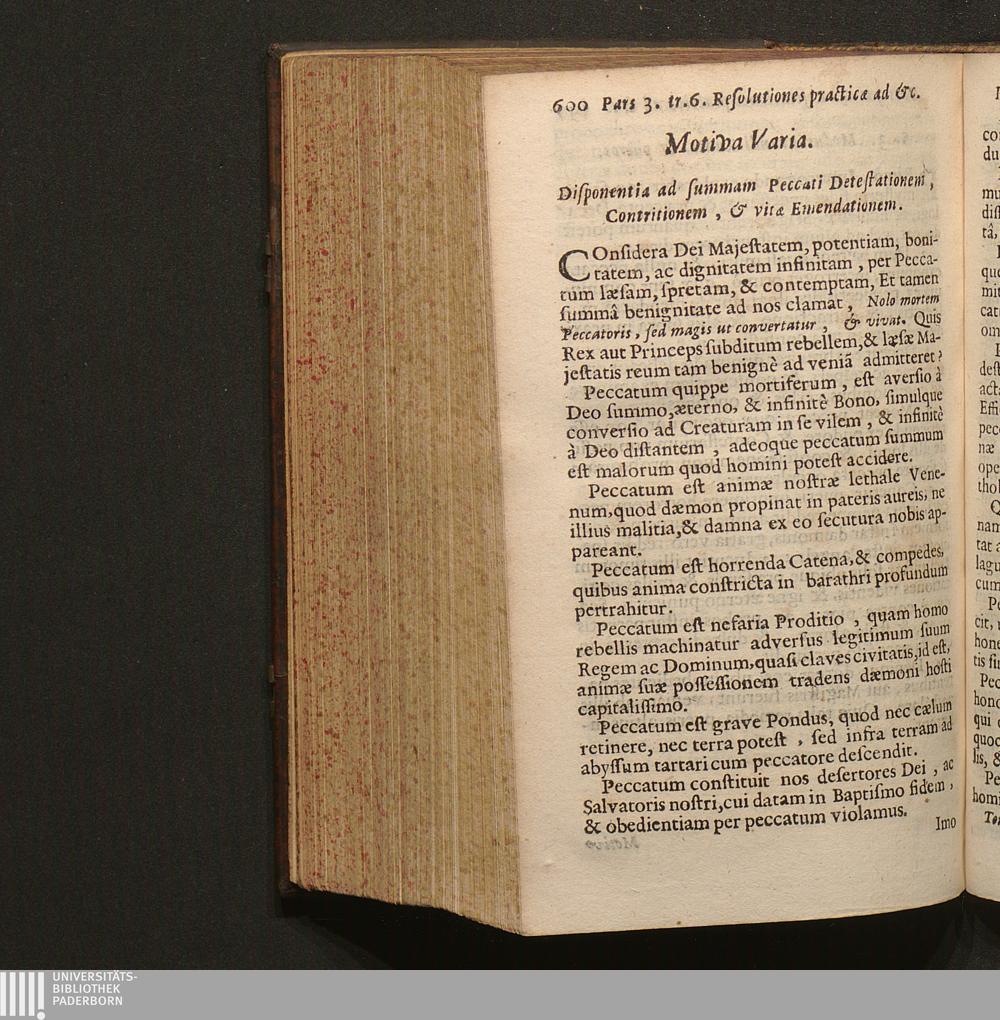 600 Pars 3. tr.6. Reſolutiones practicæ ad &c.
Motiva Varia.
Diſponentia ad ſummam Peccati Deteſtationem,
Contritionem, & vitæ Emendationem.
COnſidera Dei Majeſtatem, potentiam, boni-
tatem, ac dignitatem infinitam, per Pecca-
tum læſam, ſpretam, & contemptam, Et tamen
ſummâ benignitate ad nos clamat, Nolo mortem
Peccatoris, ſed magis ut convertatur, & vivat. Quis
Rex aut Princeps ſubditum rebellem, & læſæ Ma-
jeſtatis reum tam benignè ad veniã admitteret?
Peccatum quippe mortiferum, eſt averſio à
Deo ſummo, æterno, & infinitè Bono, ſimulque
converſio ad Creaturam in ſe vilem, & infinitè
à Deo diſtantem, adeoque peccatum ſummum
eſt malorum quod homini poteſt accidere.
Peccatum eſt animæ noſtræ lethale Vene-
num, quod dæmon propinat in pateris aureis, ne
illius malitia, & damna ex eo ſecutura nobis ap-
pareant.
Peccatum eſt horrenda Catena, & compedes,
quibus anima conſtricta in barathri profundum
pertrahitur.
Peccatum eſt nefaria Proditio, quam homo
rebellis machinatur adverſus legitimum ſuum
Regem ac Dominum, quaſi claves civitatis, id eſt,
animæ ſuæ poſſeſſionem tradens dæmoni hoſti
capitaliſſimo.
Peccatum eſt grave Pondus, quod nec cælum
retinere, nec terra poteſt, ſed infra terram ad
abyſſum tartari cum peccatore deſcendit.
Peccatum conſtituit nos deſertores Dei, ac
Salvatoris noſtri, cui datam in Baptiſmo fidem,
& obedientiam per peccatum violamus.
Imo
UNIVERSITÄTS-
BIBLIOTHEK
PADERBORN